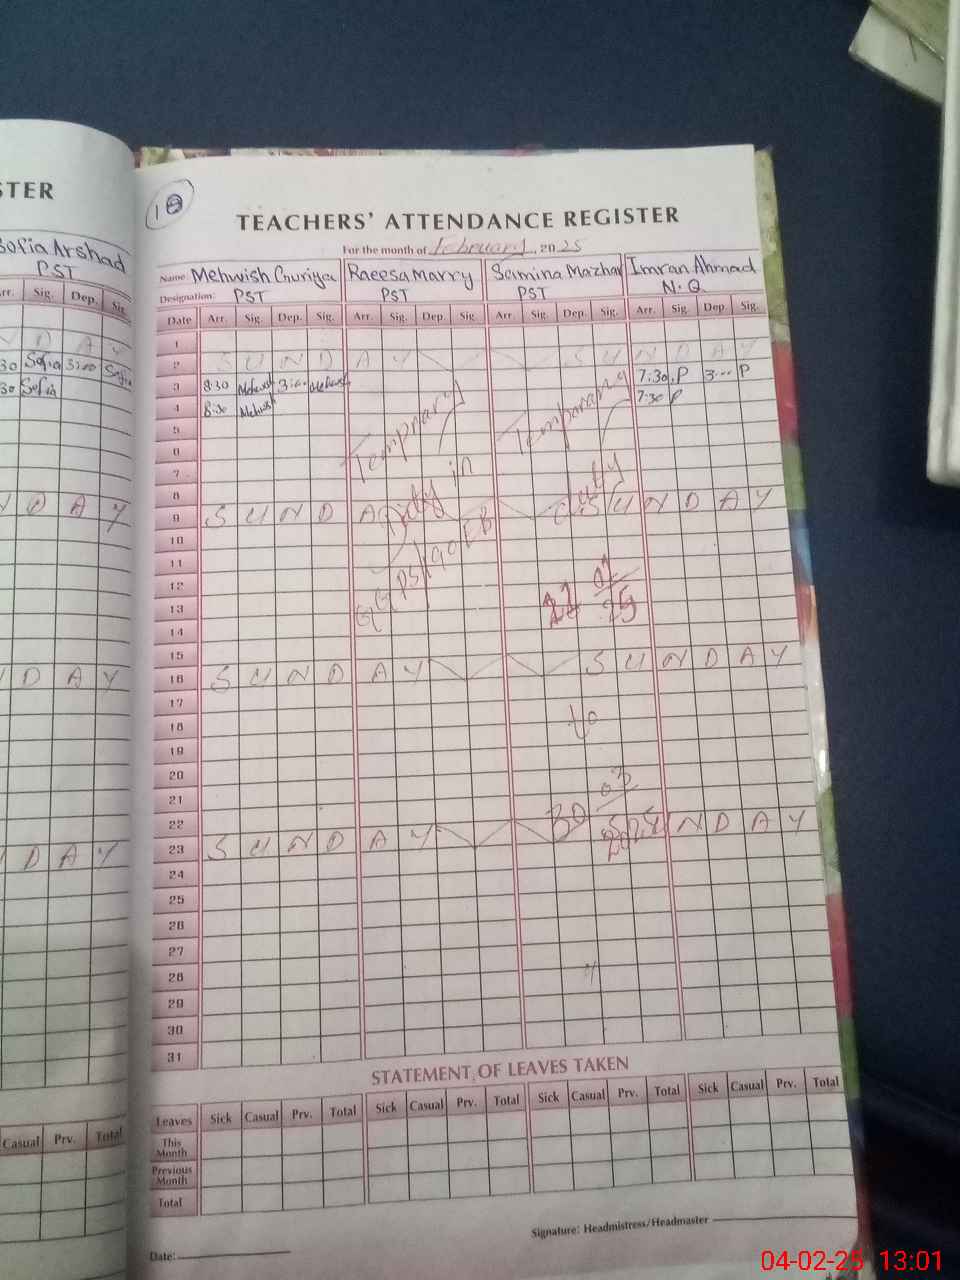 STER
Sofia Arshad
PST
Arr. Sig. Dep. Sig.
D A Y
30 Sofia 3:00 Sofia
30 Sofia
D A Y
D A Y
D A Y
Casual Prv. Total
TEACHERS' ATTENDANCE REGISTER
For the month of February, 2025
Name: Mehwish Guriya Raeesa Marry Samina Mazhar Imran Ahmad
Designation: PST PST PST N.Q
Date Arr. Sig. Dep. Sig. Arr. Sig. Dep. Sig. Arr Sig. Dep. Sig. Arr. Sig. Dep. Sig.
1
2 S U N D A Y S U N D A Y
3 8:30 Mehwish 3:00 Mehwish 7:30 P 3:00 P
4 8:30 Mehwish 7:30 P
5
6
7
8
9 S U N D A S U N D A Y
10
11
12
13
14
15
16 S U N D A Y S U N D A Y
17
18
19
20
21
22
23 S U N D A Y U N D A Y
24
25
26
27
28
29
30
31
Tempnary
Duty in
GGPS 190 EB
Temparary
duty
to
30 03
STATEMENT OF LEAVES TAKEN
Leaves Sick Casual Prv. Total Sick Casual Prv. Total Sick Casual Prv. Total Sick Casual Prv. Total
This Month
Previous Month
Total
Signature: Headmistress/Headmaster
Date:
04-02-25 13:01